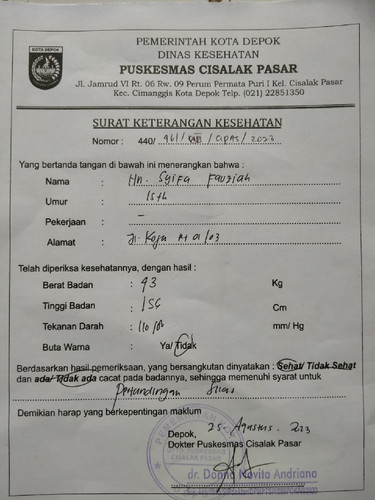 KOTA DEPOK
PEMERINTAH KOTA DEPOK
DINAS KESEHATAN
PUSKESMAS CISALAK PASAR
Jl. Jamrud VI Rt. 06 Rw. 09 Perum Permata Puri I Kel. Cisalak Pasar
Kec. Cimanggis Kota Depok Telp. (021) 22851350
SURAT KETERANGAN KESEHATAN
Nomor : 440/ 961 / VIII / CIPAS / 2023
Yang bertanda tangan di bawah ini menerangkan bahwa :
Nama : Nn. Syifa Fauziah
Umur : 15 th
Pekerjaan : -
Alamat : Jl. Koja Rt 01/03
Telah diperiksa kesehatannya, dengan hasil :
Berat Badan : 43 Kg
Tinggi Badan : 156 Cm
Tekanan Darah : 110/ mm/ Hg
Buta Warna : Ya/ Tidak
Berdasarkan hasil pemeriksaan, yang bersangkutan dinyatakan : Sehat/ Tidak Sehat
dan ada/ Tidak ada cacat pada badannya, sehingga memenuhi syarat untuk
Pertandingan
Demikian harap yang berkepentingan maklum
Depok, 25 - Agustus - 2023
Dokter Puskesmas Cisalak Pasar
dr. Donna Novita Andriana